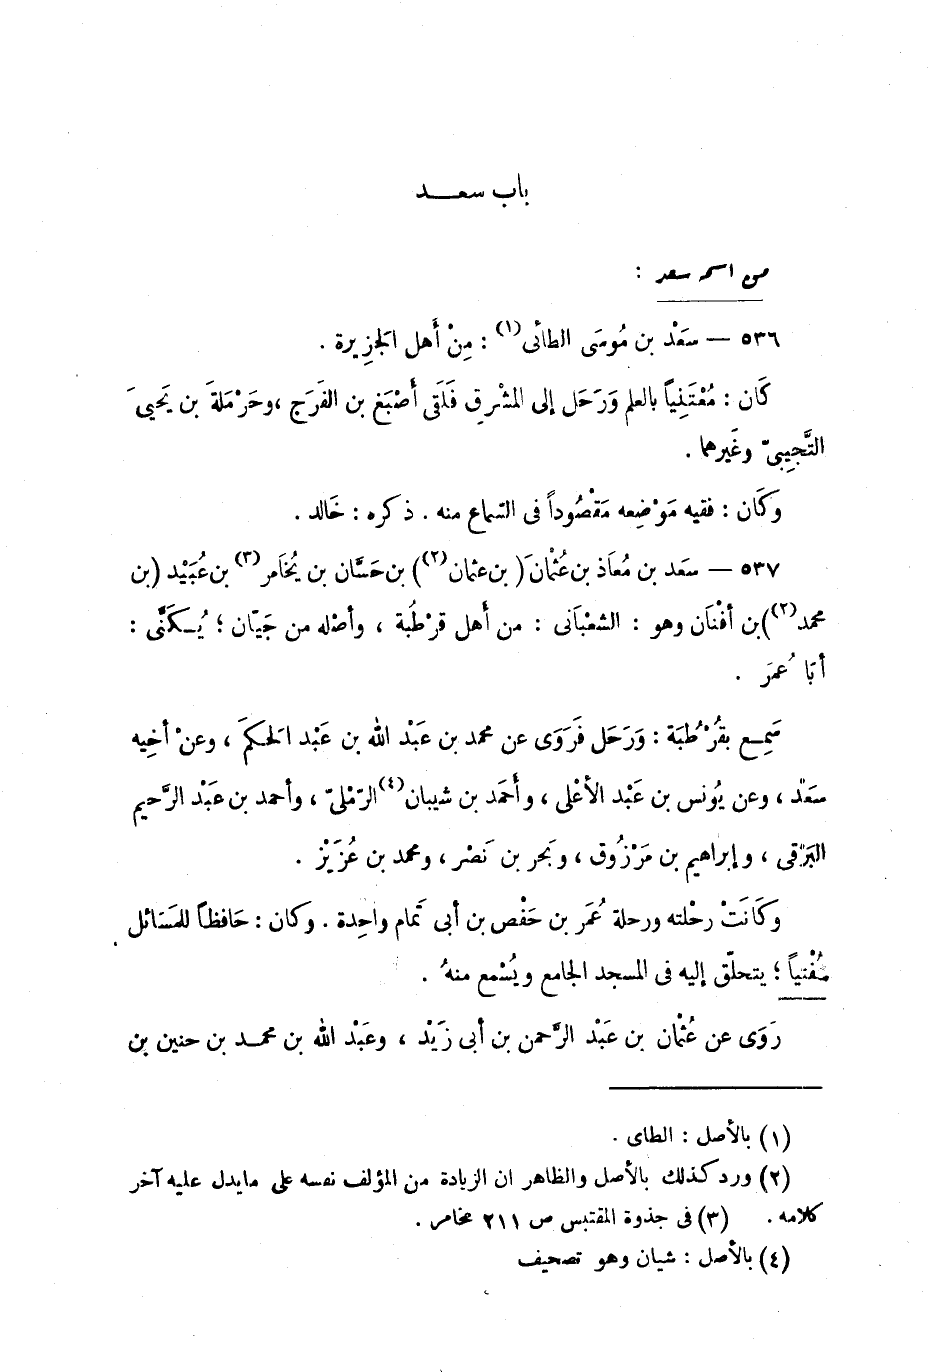 باب سعـــد
من اسمه سعد :
٥٣٦ — سَعْد بن مُوسَى الطائى(١) : مِنْ أَهل الجَزِيرة .
كَان : مُعْتَنِياً بالعلم وَرَحَل إلى المشْرِق فَلَقى أَصْبَغ بن الفَرَج ، وحَرْمَلَة بن يَحيىَ
التُّجِيبىّ وغَيرهما .
وكَان : فقيه مَوْضِعه مَقْصُوداً فى السَّماع منه . ذكره : خَالد .
٥٣٧ — سَعد بن مُعَاذ بن عُثْمانَ ( بن عثمان(٢)) بن حَسَّان بن يُخَامر(٣) بن عُبَيْد (بن
محمد(٢)) بن أفْنَان وهو : الشعْبَانى : من أَهل قرْطُبة ، وأصْله من جَيّان ؛ يُـكَنَّى :
أبَا عُمرَ .
سَمِـع بقُرْطُبَة : وَرَحَل فَرَوَى عن محمد بن عَبْد الله بن عَبْد الحَـكمَ ، وعنْ أخِيه
سَعْد ، وعن يُونس بن عَبْد الأعْلى ، وأَحمَد بن شيبان(٤) الرّمْلىّ ، وأحمد بن عَبْد الرَّحيم
البَرْقى ، وإبراهيم بن مَرْزُوق ، وبَحر بن نَصْر ، ومحمد بن عُزَيْز .
وكَانَتْ رحْلته ورحلة عُمَر بن حَفْص بن أبى تَمَام واحِدة . وكان : حَافظاً للمَسَائل
مُفْتياً ؛ يتحلّق إليه فى المسجد الجامع ويُسْمع منهُ .
رَوَى عن عُثْمان بن عَبْد الرَّحمن بن أبى زَيْد ، وعَبْد الله بن محمـد بن حنين بن
(١) بالأصل : الطاى .
(٢) ورد كذلك بالأصل والظاهر ان الزيادة من المؤلف نفسه على مايدل عليه آخر
كلامه . (٣) فى جذوة المقتبس ص ٢١١ مخامر .
(٤) بالأصل : شيان وهو تصحيف